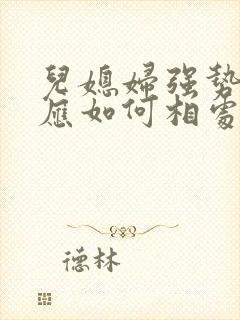 兒媳婦強勢
應如何相處
德林